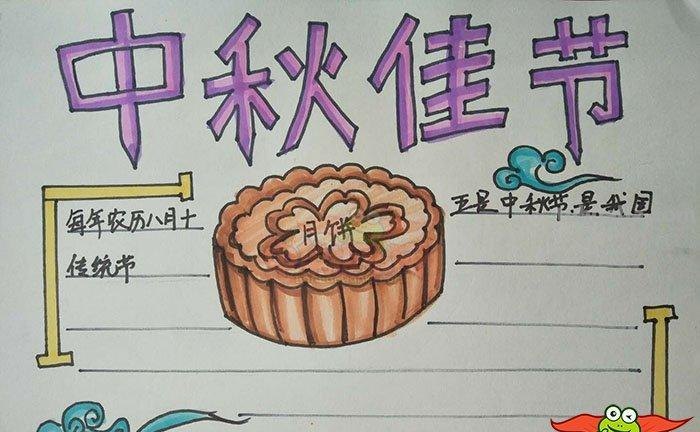 中秋佳节
每年农历八月十
五是中秋节.是我国
传统节
月饼